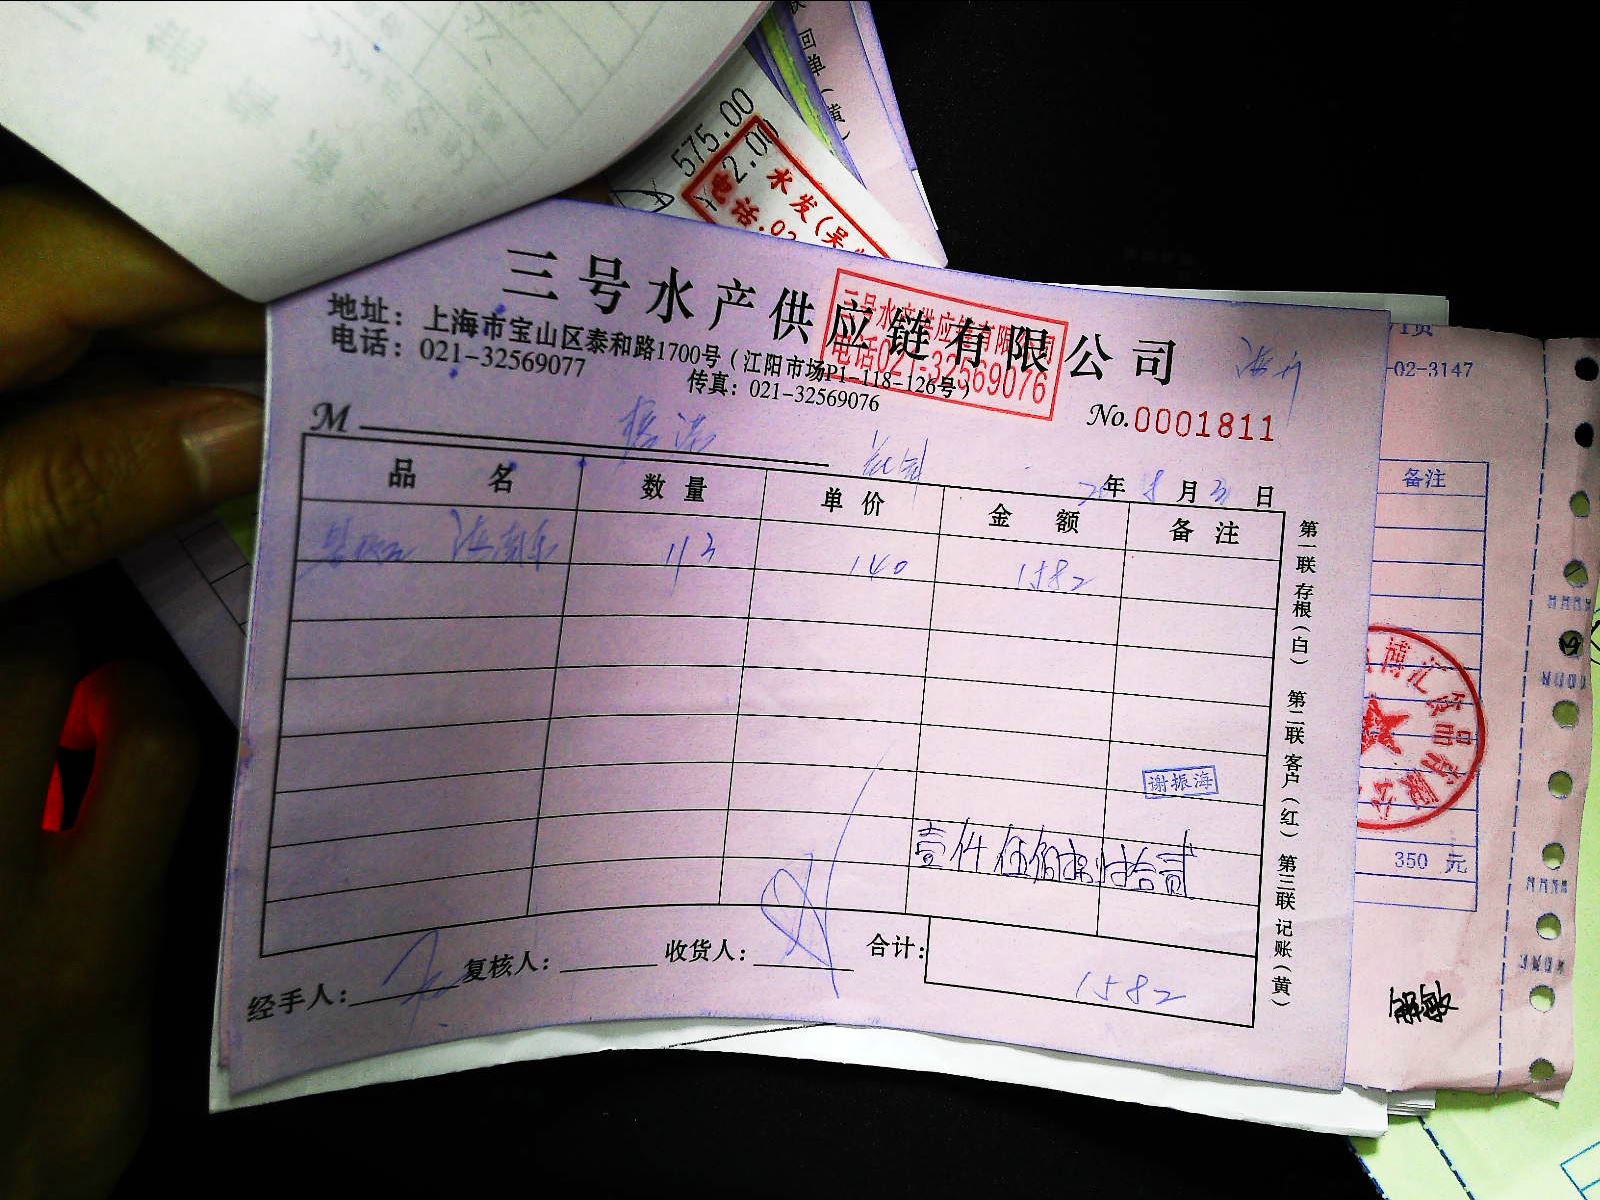 575.00
2.00
水发(吴
电话.02
回单(黄)
三号水产供应链有限公司
三号水产供应链有限公司
电话021-32569076
地址：上海市宝山区泰和路1700号（江阳市场P1-118-126号）
电话：021-32569077
传真：021-32569076
No.0001811
M
年 8 月 3 日
品 名 数 量 单 价 金 额 备 注
113 140 1582
谢振海
壹仟伍佰捌拾贰
经手人： 复核人： 收货人： 合计：
1582
第一联 存根（白） 第二联 客户（红） 第三联 记账（黄）
-02-3147
备注
博汇
350 元
解敏